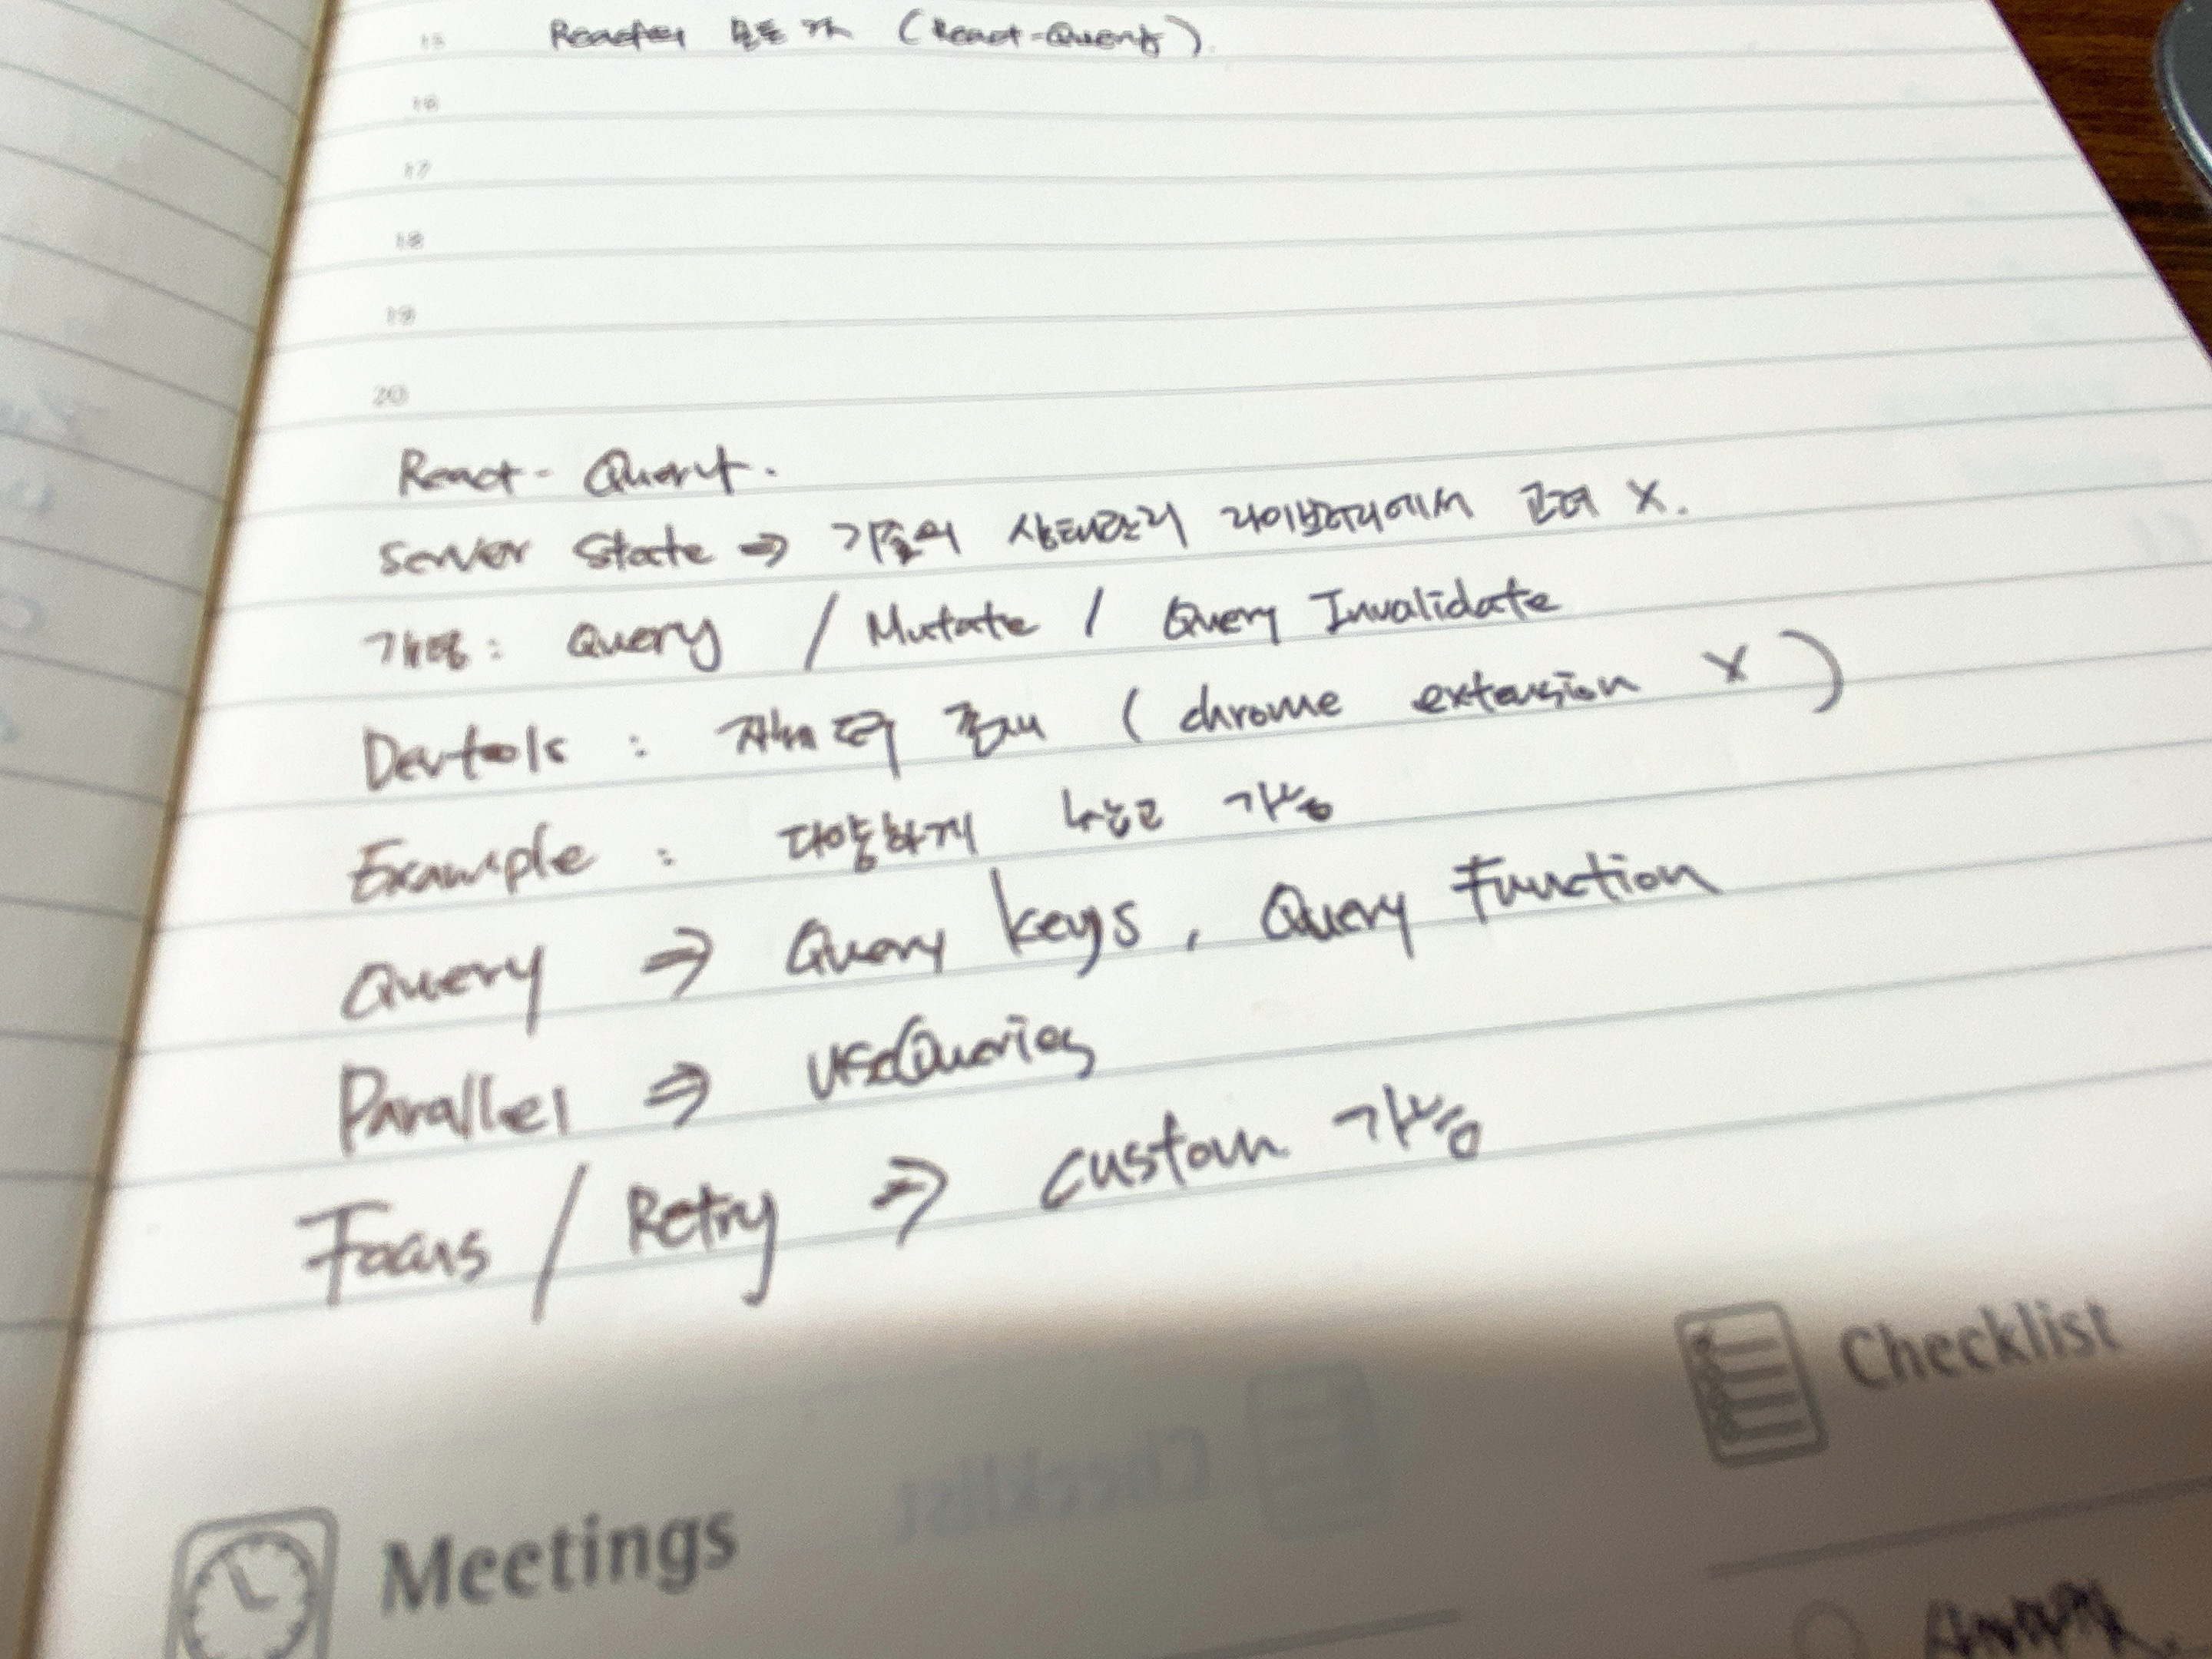 15 (React-Query).
16
17
18
19
20
React - Query.
Server State ⇒ 기존의 상태관리 라이브러리에서 고려 X.
개념: Query / Mutate / Query Invalidate
Devtools : 자체적 존재 (chrome extension X)
Example : 다양하게 참고 가능
Query ⇒ Query keys, Query Function
Parallel ⇒ useQueries
Focus / Retry ⇒ custom 가능
Checklist
Meetings